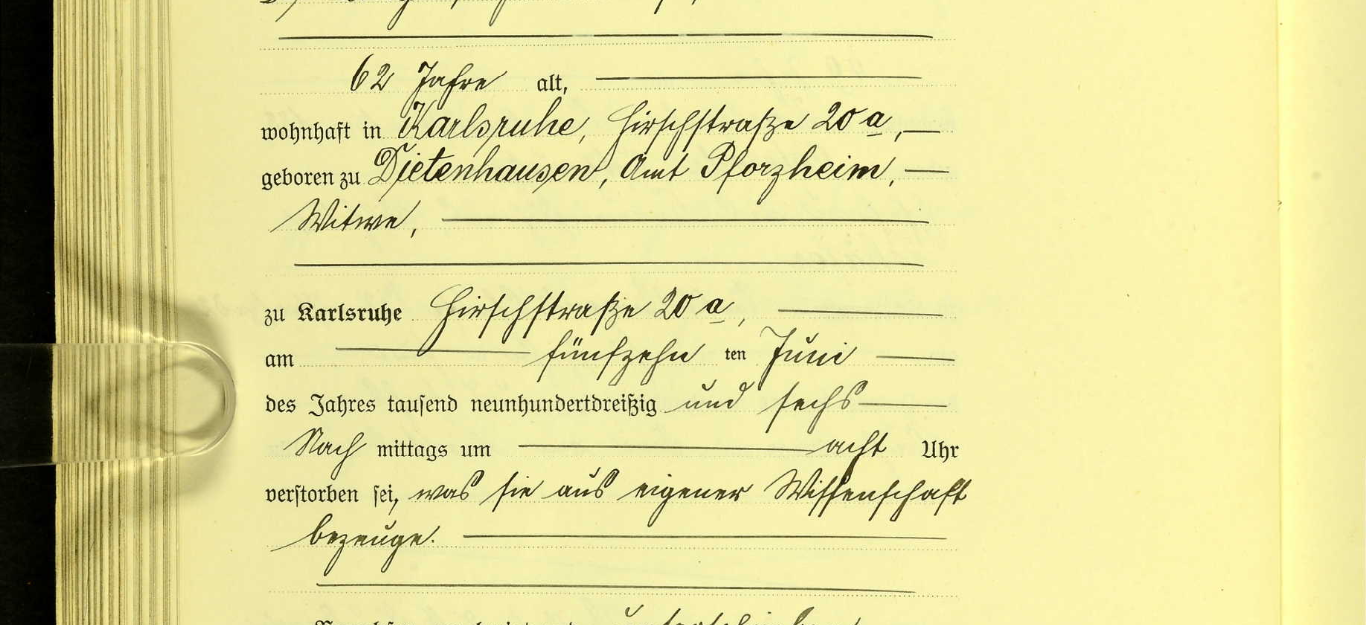 62 Jahre alt,
wohnhaft in Karlsruhe, Hirschstraße 20a,
geboren zu Dietenhausen, Amt Pforzheim,
Witwe,
zu Karlsruhe Hirschstraße 20a,
am fünfzehn ten Juni
des Jahres tausend neunhundertdreißig und sechs
Nach mittags um acht Uhr
verstorben sei, was sie aus eigener Wissenschaft
bezeuge.